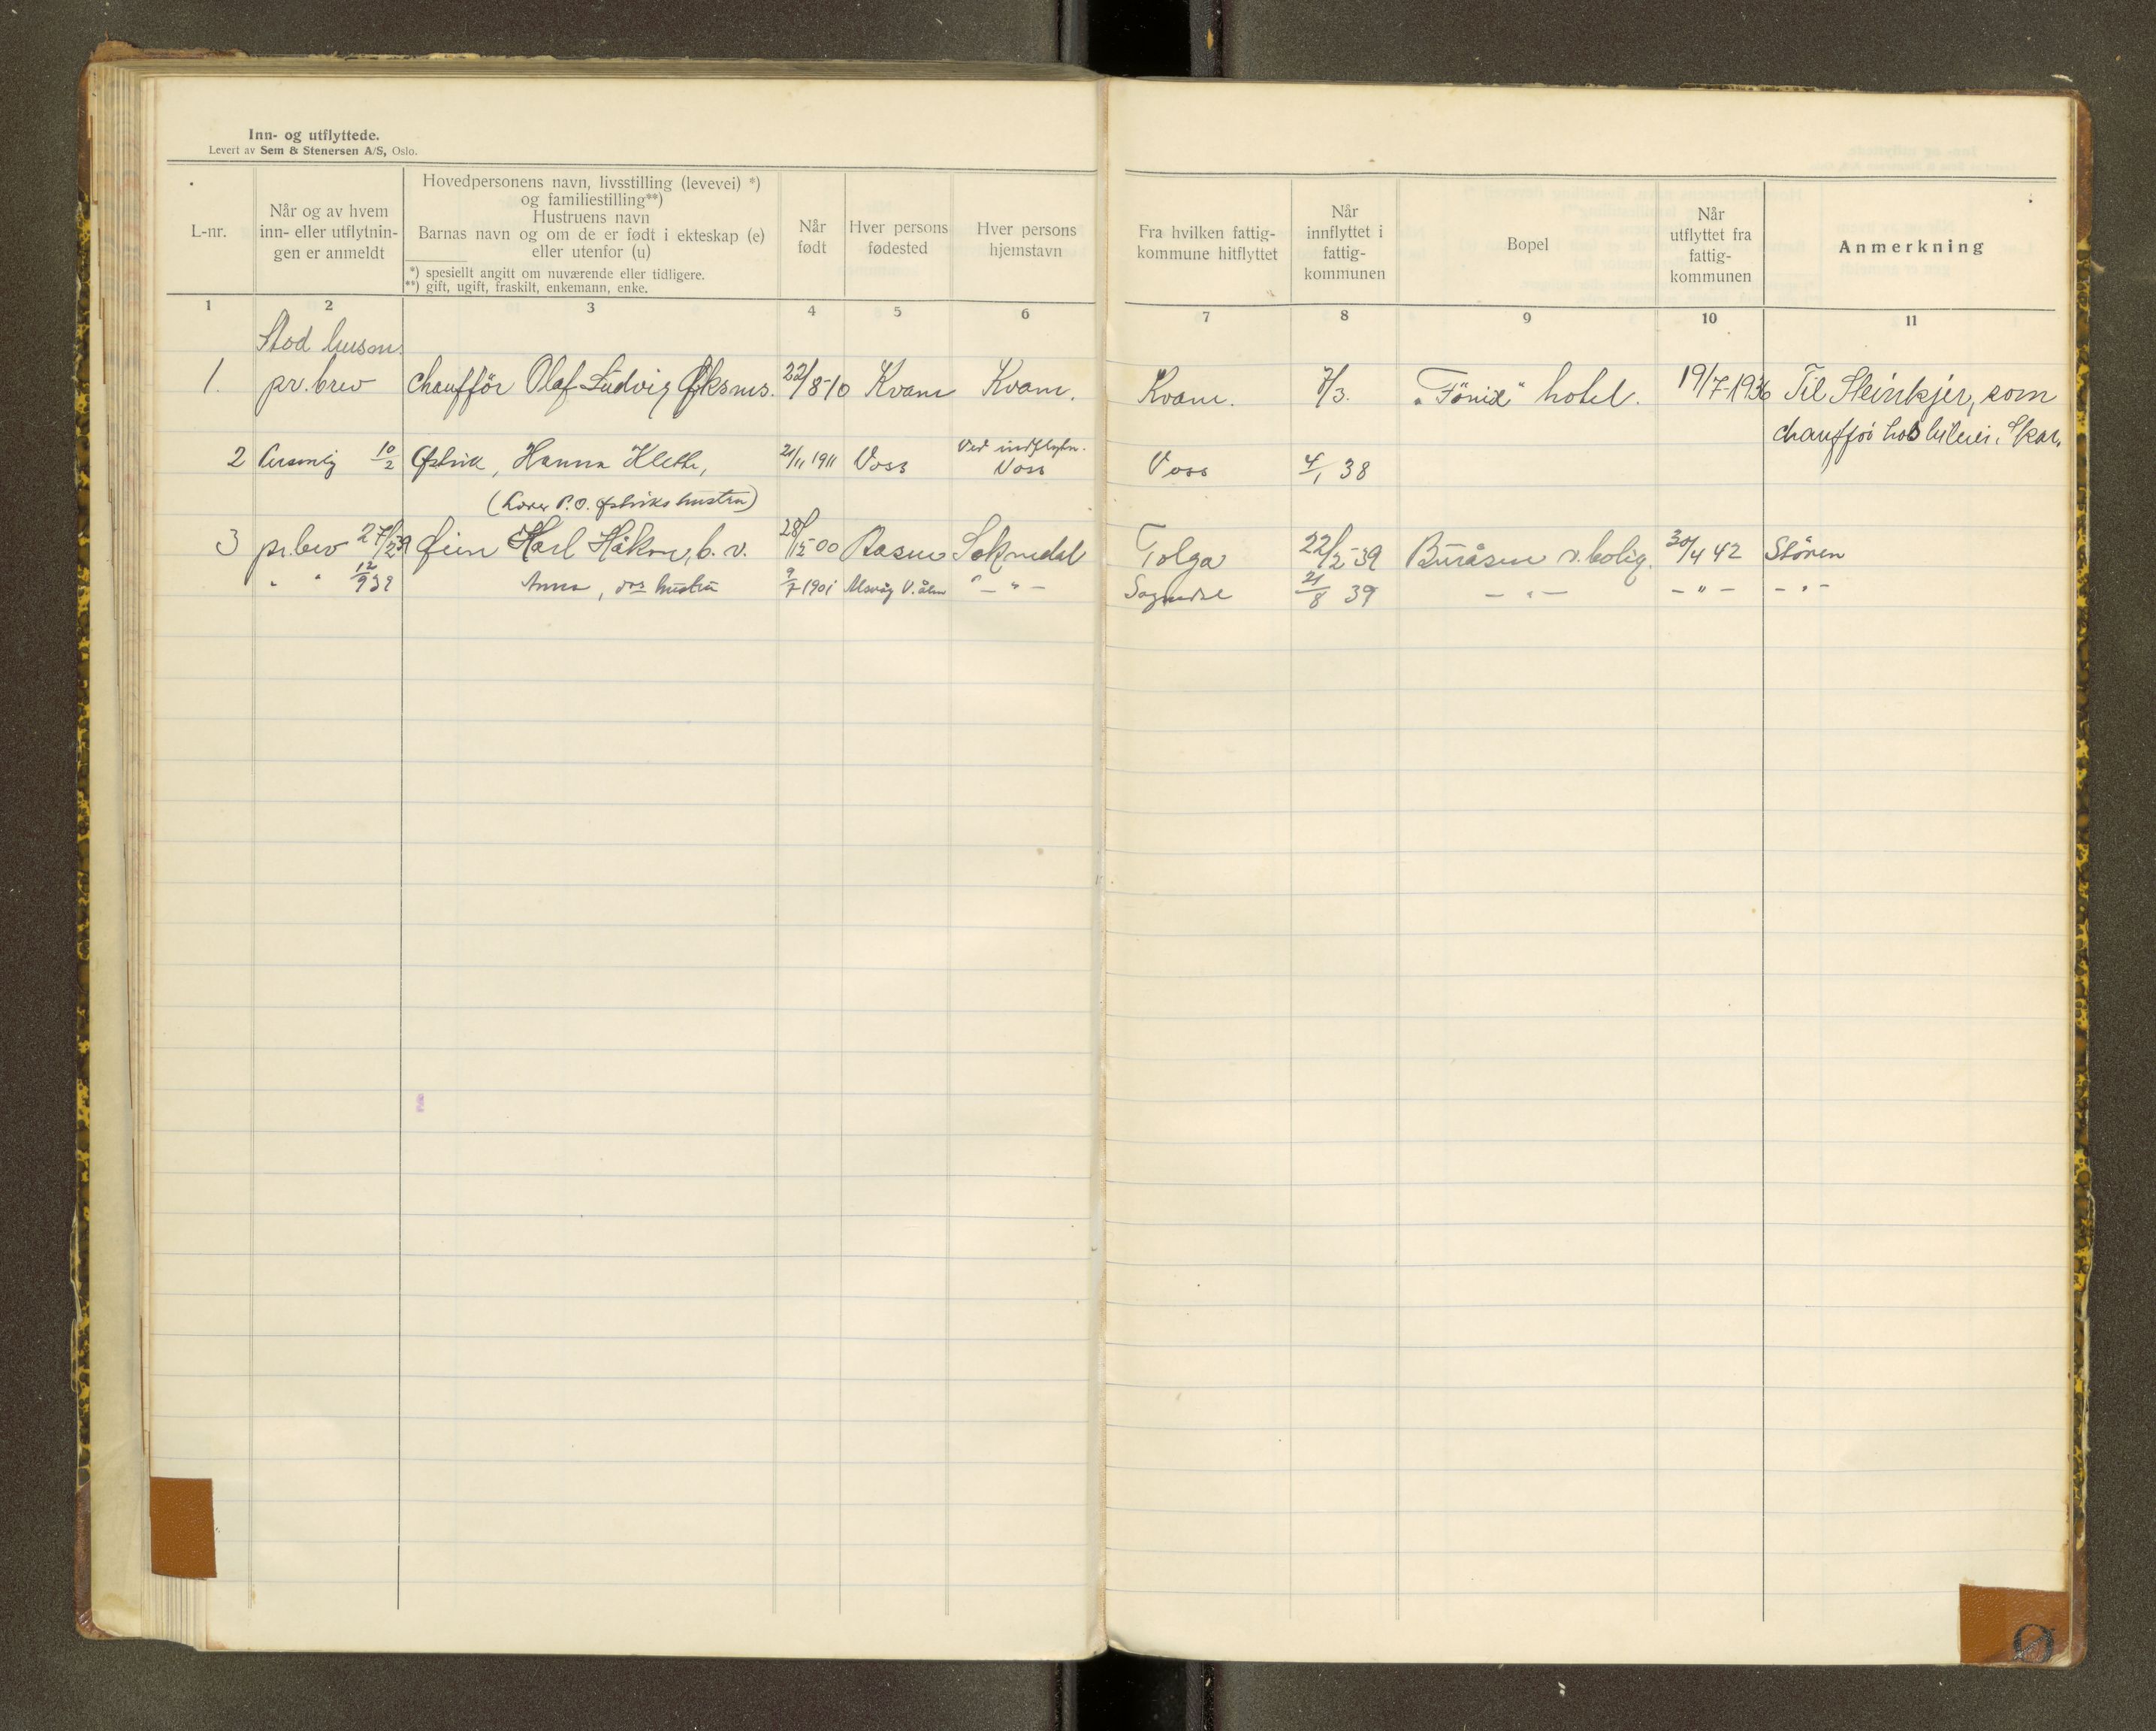 Inn- og utflyttede.
Levert av Sem & Stenersen A/S, Oslo.
L-nr.
Når og av hvem
inn- eller utflytnin-
gen er anmeldt
Hovedpersonens navn, livsstilling (levevei) *)
og familiestilling**)
Hustruens navn
Barnas navn og om de er født i ekteskap (e)
eller utenfor (u)
*) spesiellt angitt om nuværende eller tidligere.
**) gift, ugift, fraskilt, enkemann, enke.
Når
født
Hver persons
fødested
Hver persons
hjemstavn
Fra hvilken fattig-
kommune hitflyttet
Når
innflyttet i
fattig-
kommunen
Bopel
Når
utflyttet fra
fattig-
kommunen
Anmerkning
1 2 3 4 5 6 7 8 9 10 11
Stod
1. pr. brev Chaufför Olaf Ludvig 22/8-10 Kvam Kvam. Kvam. 7/3. "Fönix" hotel. 19/7-1936 Til Steinkjer, som
chaufför hos
Ved indflytn.
2 10/2 Østvik, Hanna Klethe, 21/11 1911 Voss Voss Voss 4/1 38
(Lærer P.O. Østviks hustru)
3 pr. brev 27/2 39 Øien Karl Håkon, b. v. 28/12-00 Soknedal Tolga 22/2-39 Buråsen v. bolig. 30/4 42 Stören
" " 12/9 39 Anna, ds hustru 9/7-1901 - " - 21/8 39 - " - - " - - " -
Ø